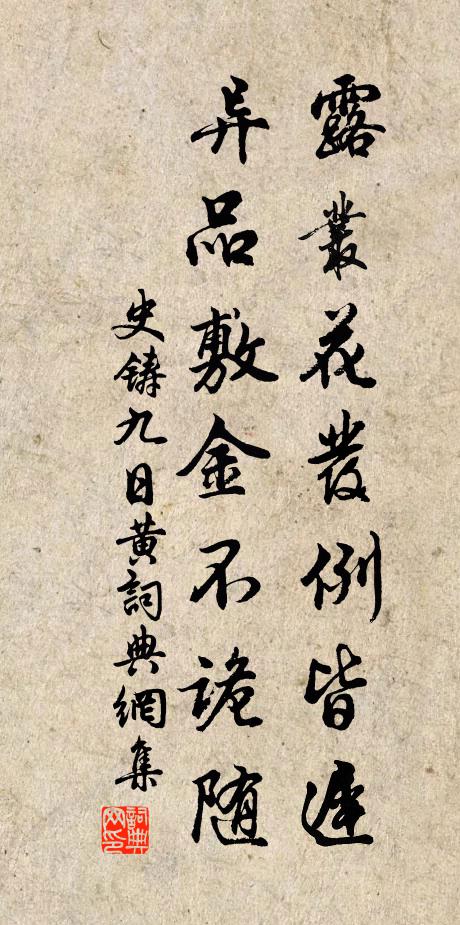 露叢花發例皆遲
异品敷金不詭随
史鑄九日黄詞典網集
詞典網印